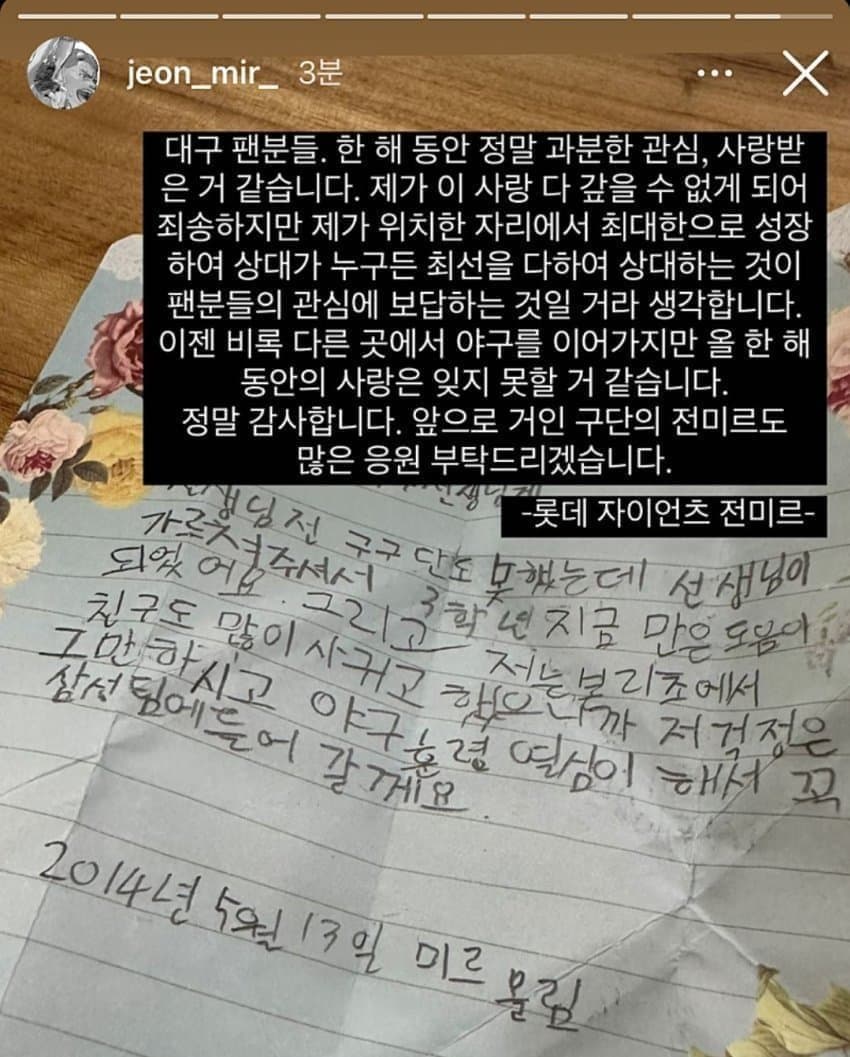 jeon_mir_ 3분
대구 팬분들. 한 해 동안 정말 과분한 관심, 사랑받
은 거 같습니다. 제가 이 사랑 다 갚을 수 없게 되어
죄송하지만 제가 위치한 자리에서 최대한으로 성장
하여 상대가 누구든 최선을 다하여 상대하는 것이
팬분들의 관심에 보답하는 것일 거라 생각합니다.
이젠 비록 다른 곳에서 야구를 이어가지만 올 한 해
동안의 사랑은 잊지 못할 거 같습니다.
정말 감사합니다. 앞으로 거인 구단의 전미르도
많은 응원 부탁드리겠습니다.
-롯데 자이언츠 전미르-
선생님께
선생님전 구구단도 못했는데 선생님이
가르쳐주셔서 3학년 지금 만은 도움이
되었어요. 그리고 저는 본리초에서
친구도 많이 사귀고 했으니까 저 걱정은
그만하시고 야구훈령 열심이 해서 꼭
삼성팀에 들어 갈께요.
2014년 5월 13일 미르 올림